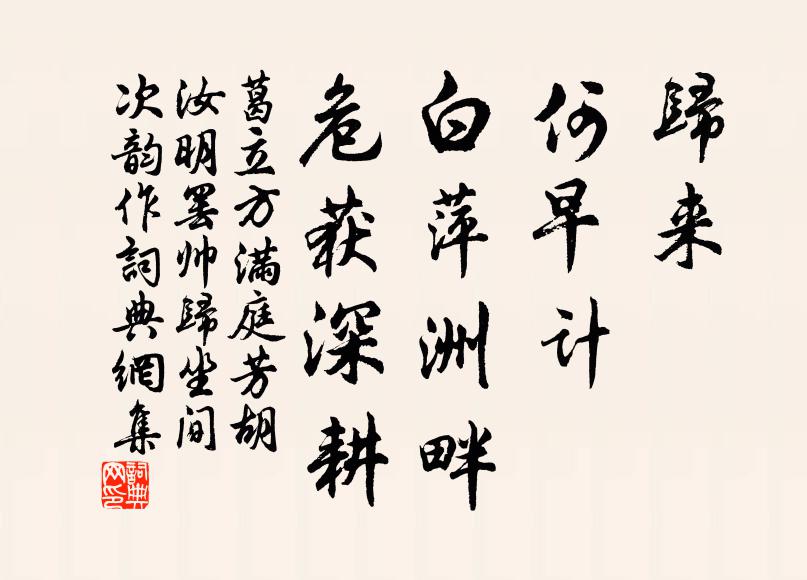 歸来
何早计
白萍洲畔
危获深耕
葛立方满庭芳胡
汝明罢帅歸坐间
次韵作詞典網集
詞典网印